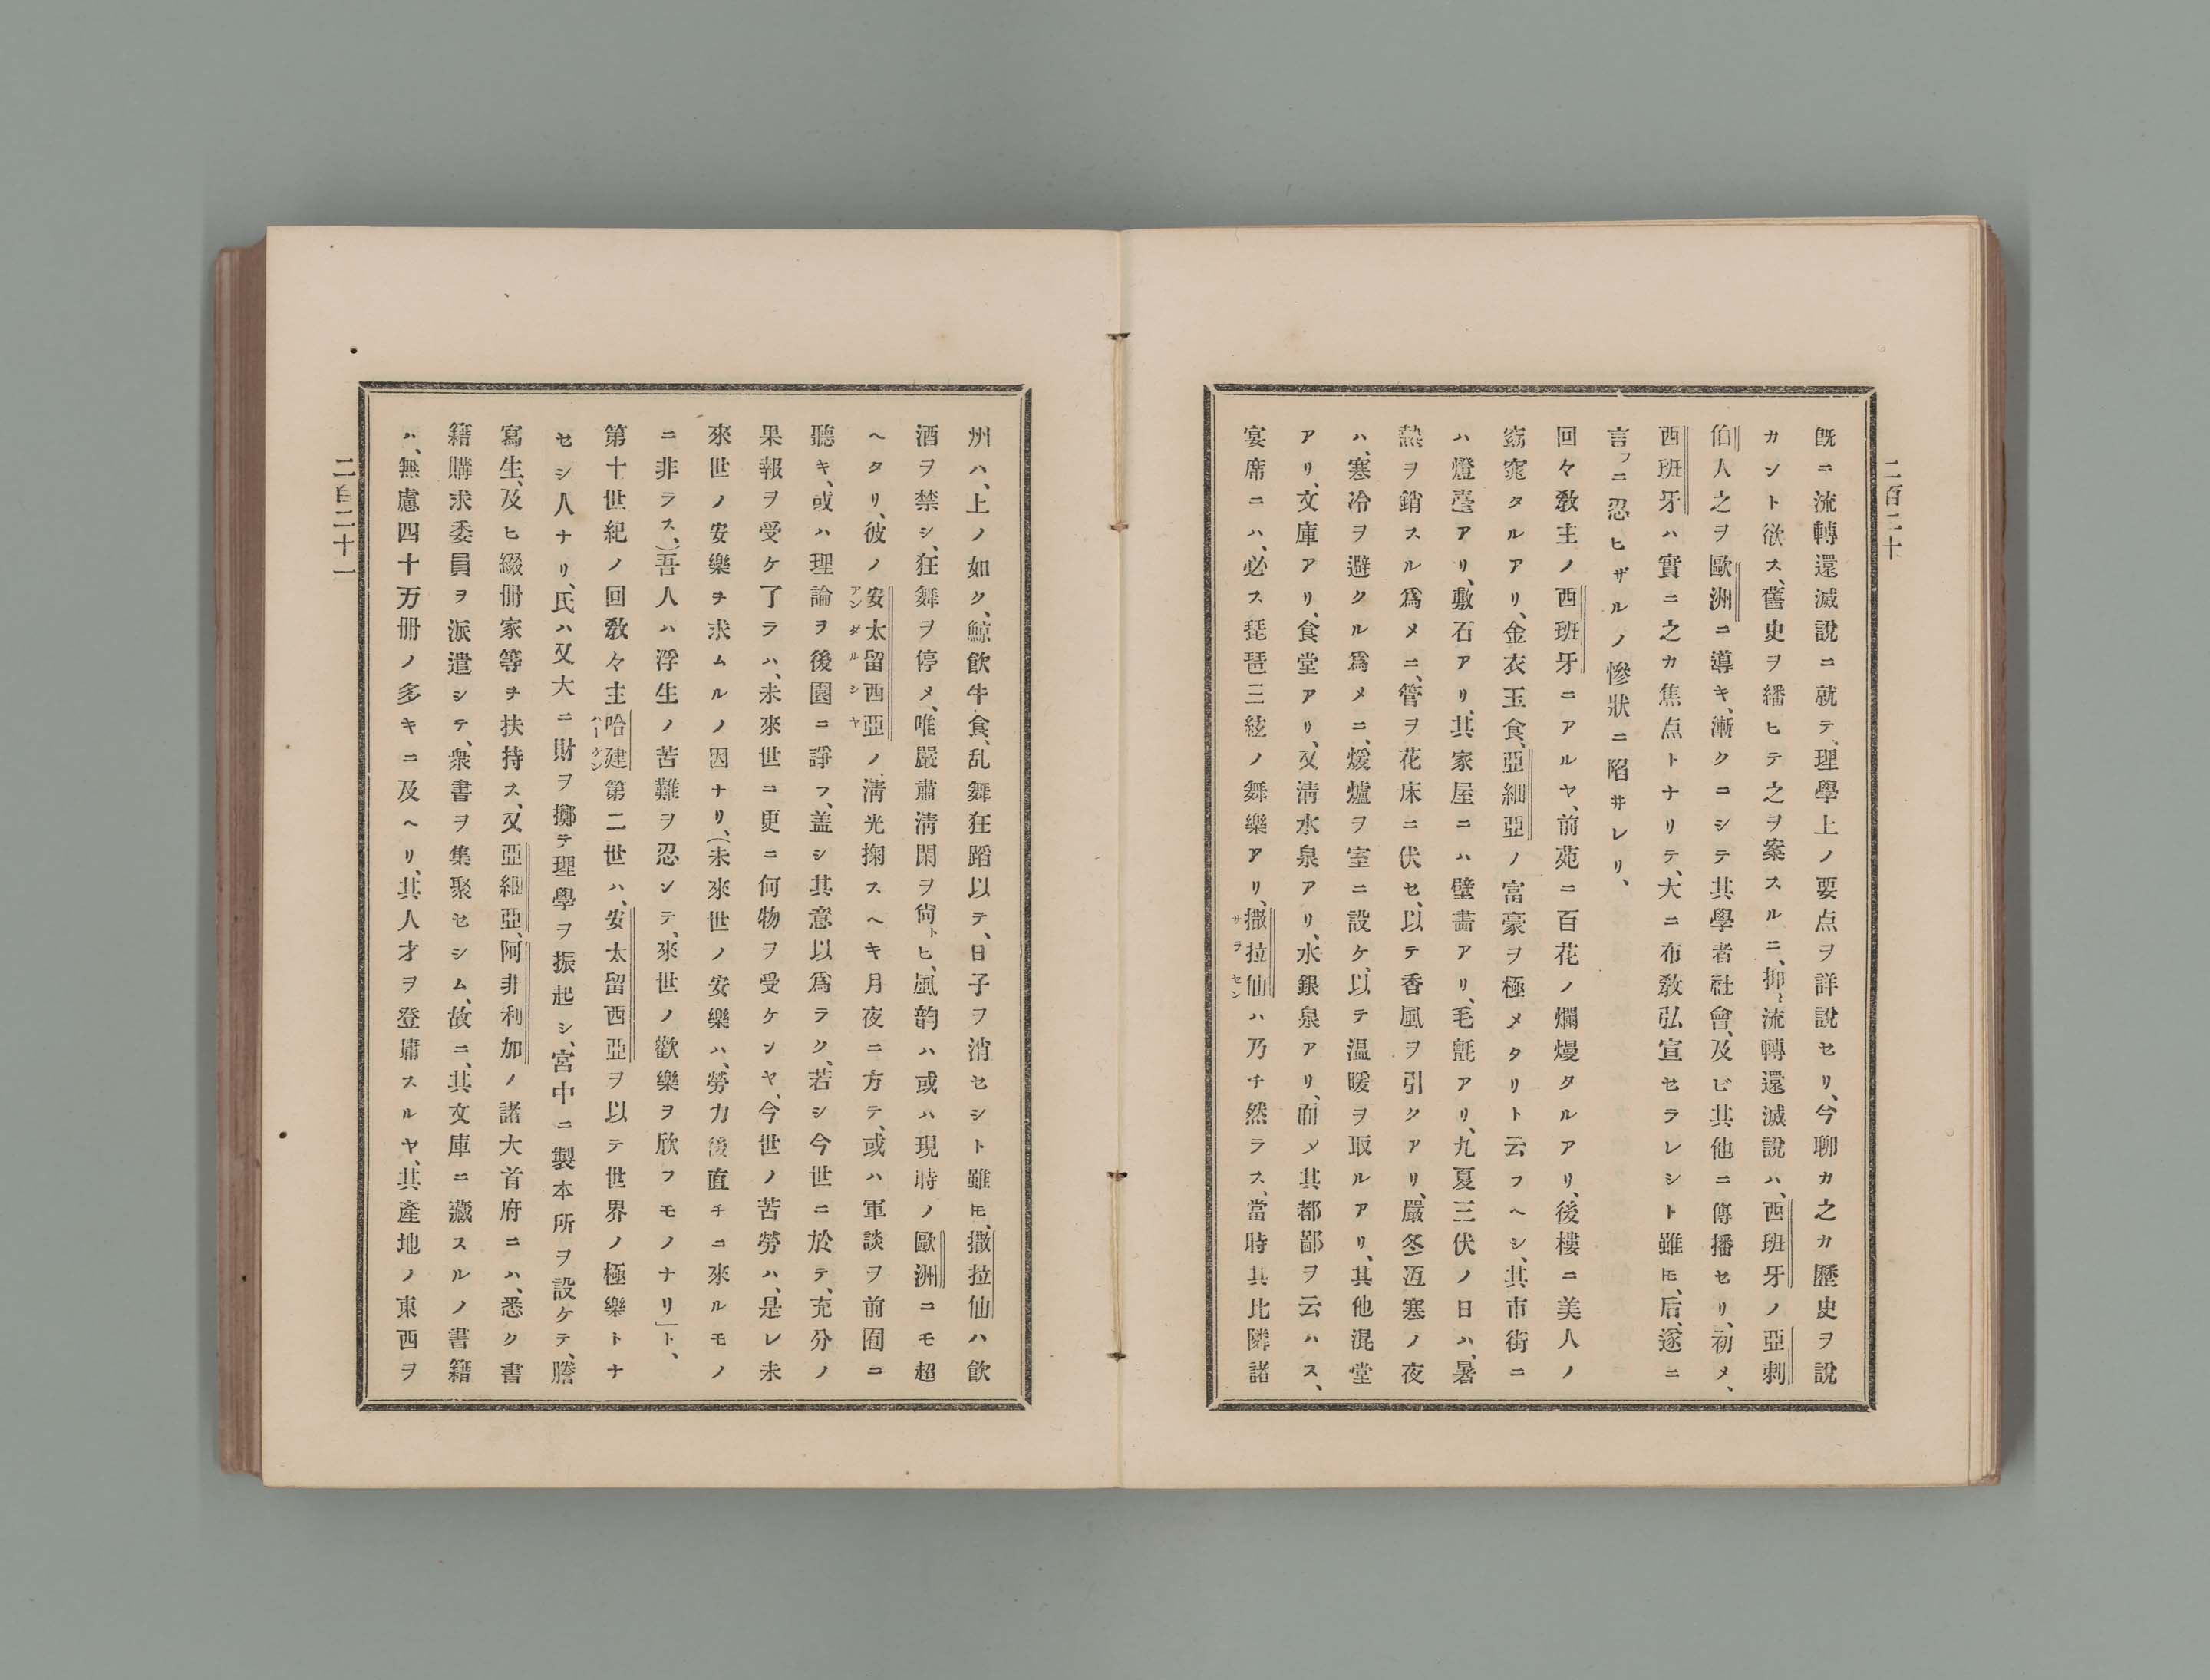 二百二十
既ニ流轉還滅說ニ就テ、理學上ノ要点ヲ詳說セリ、今聊カ之カ歷史ヲ說
カント欲ス、舊史ヲ繙ヒテ之ヲ案スルニ、抑〻流轉還滅說ハ、西班牙ノ亞刺
伯人之ヲ歐洲ニ導キ、漸クニシテ其學者社會、及ビ其他ニ傳播セリ、初メ、
西班牙ハ實ニ之カ焦点トナリテ、大ニ布敎弘宣セラレシト雖𪜈、后、遂ニ
言フニ忍ヒザルノ慘狀ニ陷井レリ、
回々敎主ノ西班牙ニアルヤ、前苑ニ百花ノ爛熳タルアリ、後樓ニ美人ノ
窈窕タルアリ、金衣玉食、亞細亞ノ富豪ヲ極メタリト云フヘシ、其市街ニ
ハ燈臺アリ、敷石アリ、其家屋ニハ壁畵アリ、毛氈アリ、九夏三伏ノ日ハ、暑
熱ヲ銷スル爲メニ、管ヲ花床ニ伏セ、以テ香風ヲ引クアリ、嚴冬沍寒ノ夜
ハ、寒冷ヲ避クル爲メニ、煖爐ヲ室ニ設ケ、以テ温暖ヲ取ルアリ、其他混堂
アリ、文庫アリ、食堂アリ、又淸水泉アリ、水銀泉アリ、而〆其都鄙ヲ云ハス、
宴席ニハ、必ス琵琶三絃ノ舞樂アリ、撒拉仙サラセンハ乃チ然ラス、當時其比隣諸
州ハ、上ノ如ク、鯨飮牛食、乱舞狂蹈以テ、日子ヲ消セシト雖𪜈、撒拉仙ハ飮
酒ヲ禁シ、狂舞ヲ停メ、唯嚴肅淸閑ヲ尙トヒ、風韵ハ或ハ現時ノ歐洲ニモ超
ヘタリ、彼ノ安太留西亞アンダルシヤノ、淸光掬スヘキ月夜ニ方テ、或ハ軍談ヲ前囿ニ
聽キ、或ハ理論ヲ後園ニ諍フ、盖シ其意以爲ラク、若シ今世ニ於テ、充分ノ
果報ヲ受ケ了ラハ、未來世ニ更ニ何物ヲ受ケンヤ、今世ノ苦勞ハ、是レ未
來世ノ安樂チ求ムルノ因ナリ、（未來世ノ安樂ハ、勞力後直チニ來ルモノ
ニ非ラス、）吾人ハ浮生ノ苦難ヲ忍ンテ、來世ノ歡樂ヲ欣フモノナリ」ト、
第十世紀ノ回敎々主哈建ハーケン第二世ハ、安太留西亞ヲ以テ世界ノ極樂トナ
セシ人ナリ、氏ハ又大ニ財ヲ擲テ理學ヲ振起シ、宮中ニ製本所ヲ設ケテ、謄
寫生、及ヒ綴册家等チ扶持ス、又亞細亞、阿非利加ノ諸大首府ニハ、悉ク書
籍購求委員ヲ派遣シテ、衆書ヲ集聚セシム、故ニ、其文庫ニ藏スルノ書籍
ハ、無慮四十万册ノ多キニ及ヘリ、其人才ヲ登庸スルヤ、其產地ノ東西ヲ
二百二十一